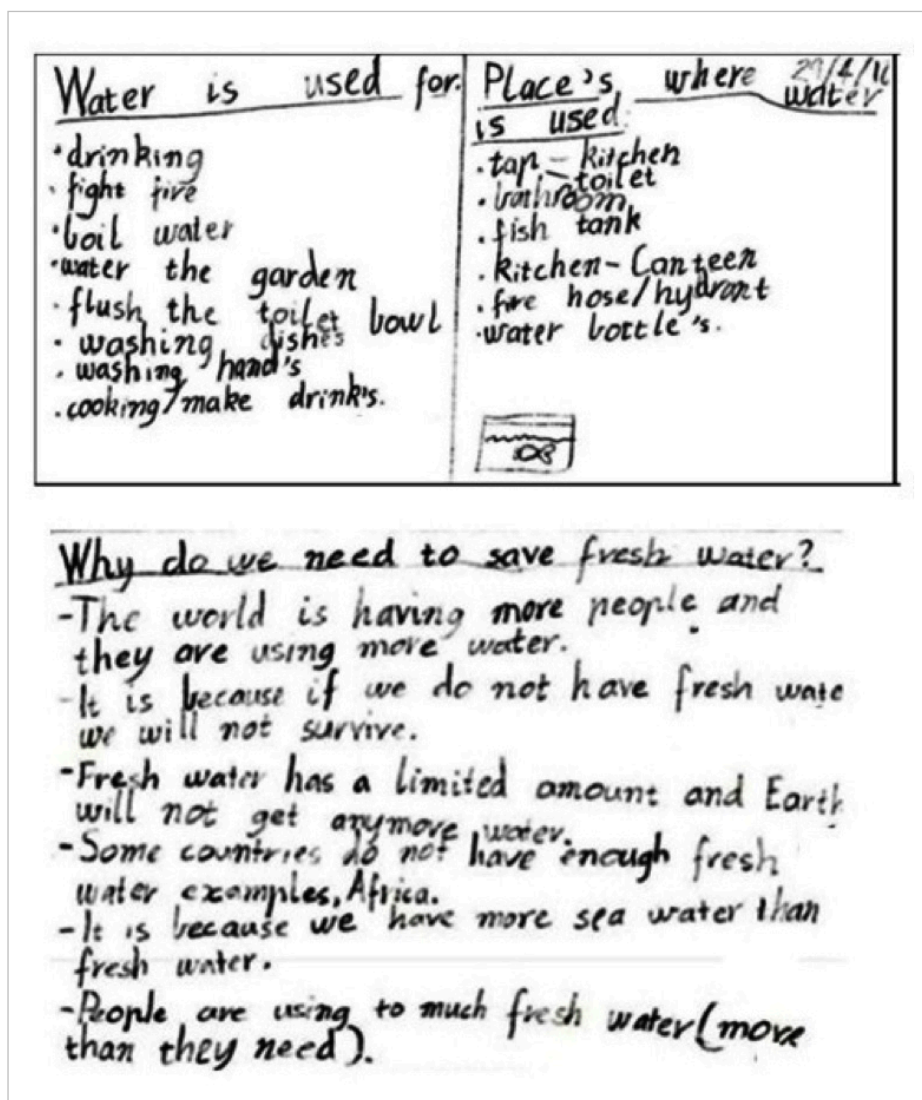 Water is used for:
• drinking
• fight fire
• boil water
• water the garden
• flush the toilet bowl
• washing dishes
• washing hand's
• cooking/make drink's.
Place's where water
is used:
• tap - kitchen
- toilet
• bathroom
• fish tank
• kitchen - Canteen
• fire hose/hydrant
• water bottle's.
Why do we need to save fresh water?
- The world is having more people and
they are using more water.
- It is because if we do not have fresh wate
we will not survive.
- Fresh water has a limited amount and Earth
will not get anymore water.
- Some countries do not have enough fresh
water examples, Africa.
- It is because we have more sea water than
fresh water.
- People are using to much fresh water (more
than they need).